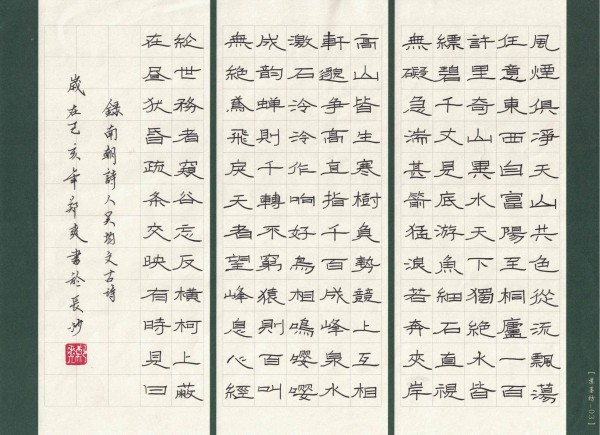 風煙俱淨天山共色從流飄蕩
任意東西自富陽至桐廬一百
許里奇山異水天下獨絕水皆
縹碧千丈見底游魚細石直視
無礙急湍甚箭猛浪若奔夾岸
高山皆生寒樹負勢競上互相
軒邈爭高直指千百成峰泉水
激石泠泠作响好鳥相鳴嚶嚶
成韵蟬則千轉不窮猿則百叫
無絕鳶飛戾天者望峰息心經
綸世務者窺谷忘反橫柯上蔽
在昼犹昏疏条交映有時見日
録南朝詩人吴均文古诗
歲在己亥年爽書於長沙